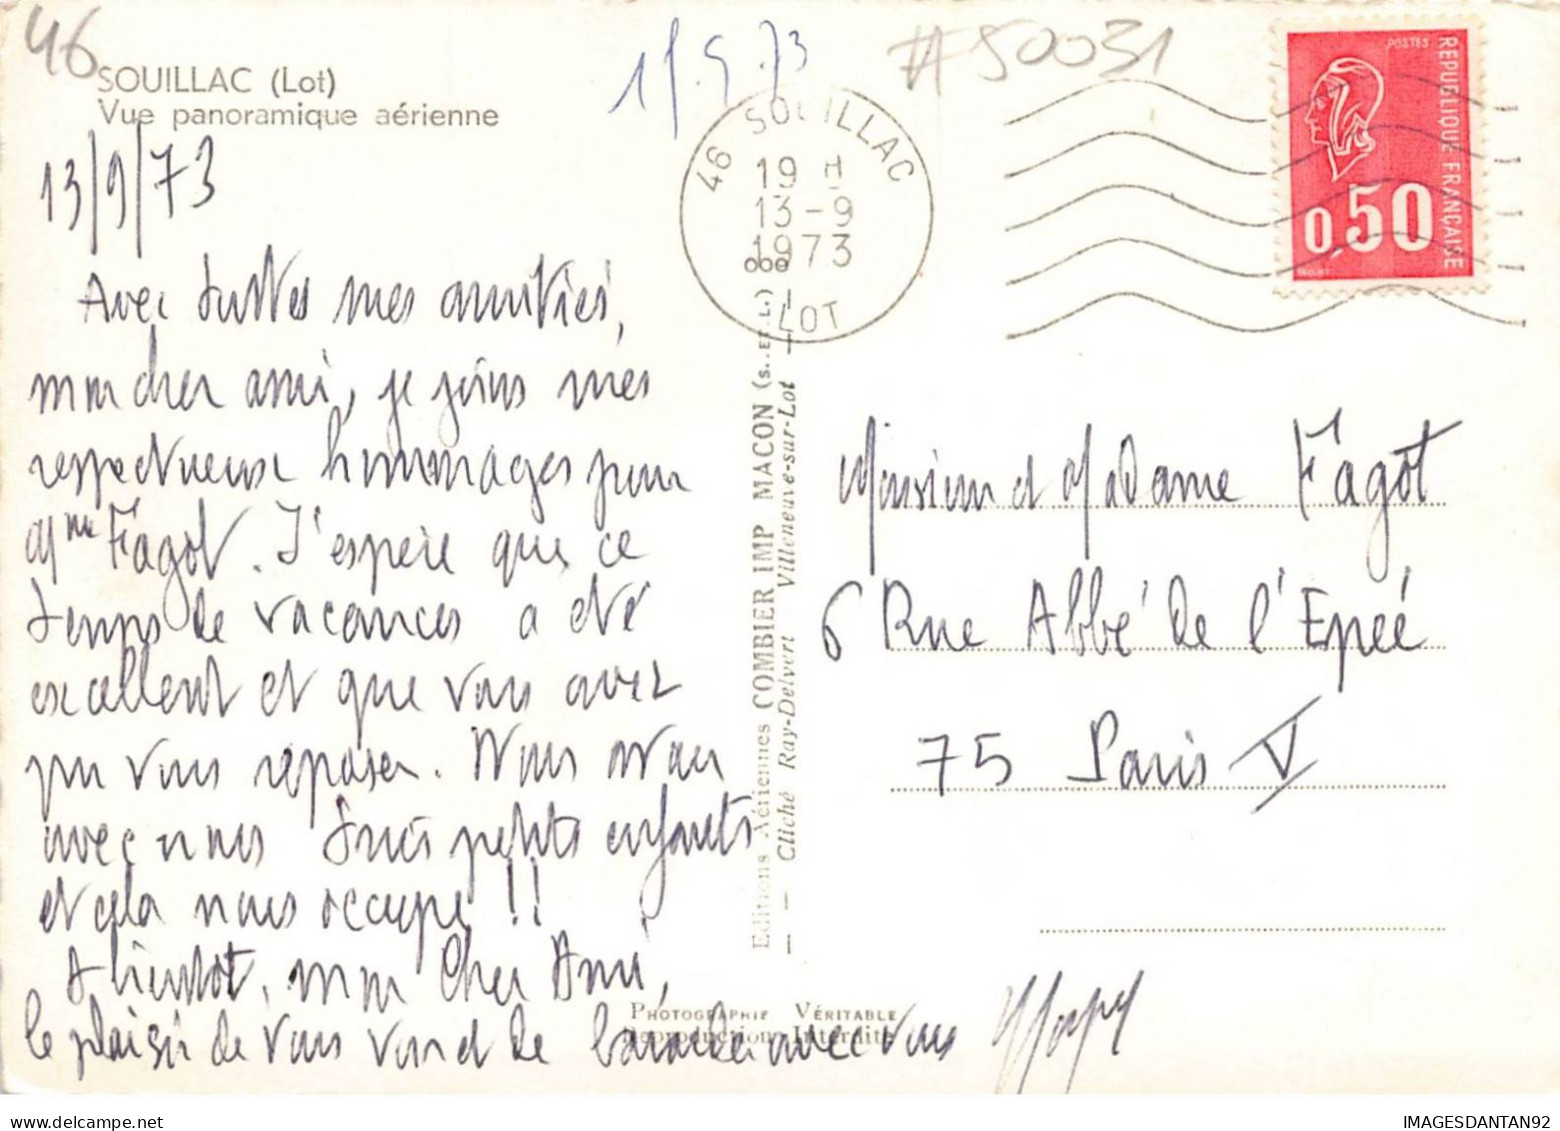 46
SOUILLAC (Lot)
Vue panoramique aérienne
#50031
13/9/73
Avec toutes mes amitiés,
mon cher ami, je joins mes
respectueux hommages pour
Mme Fagot. J'espère que ce
temps de vacances a été
excellent et que vous avez
pu vous reposer. Nous avons
avec nous trois petits enfants
et cela nous occupe !!
A bientôt, mon Cher Ami,
le plaisir de vous voir et de bavarder avec vous
46 SOUILLAC
19 H
13-9
1973
LOT
POSTES
REPUBLIQUE FRANÇAISE
0,50
Editions Aériennes COMBIER IMP MACON (S.. ET L.)
Cliché Ray-Delvert Villeneuve-sur-Lot
PHOTOGRAPHIE VÉRITABLE
Reproduction Interdite
Monsieur et Madame Fagot
6 Rue Abbé de l'Epée
75 Paris V
IMAGESDANTAN92